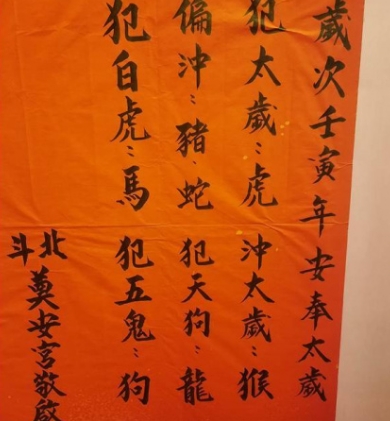 歲次壬寅年安奉太歲
犯太歲：虎 沖太歲：猴
偏沖：豬．蛇 犯天狗：龍
犯白虎：馬 犯五鬼：狗
北斗奠安宮敬啟